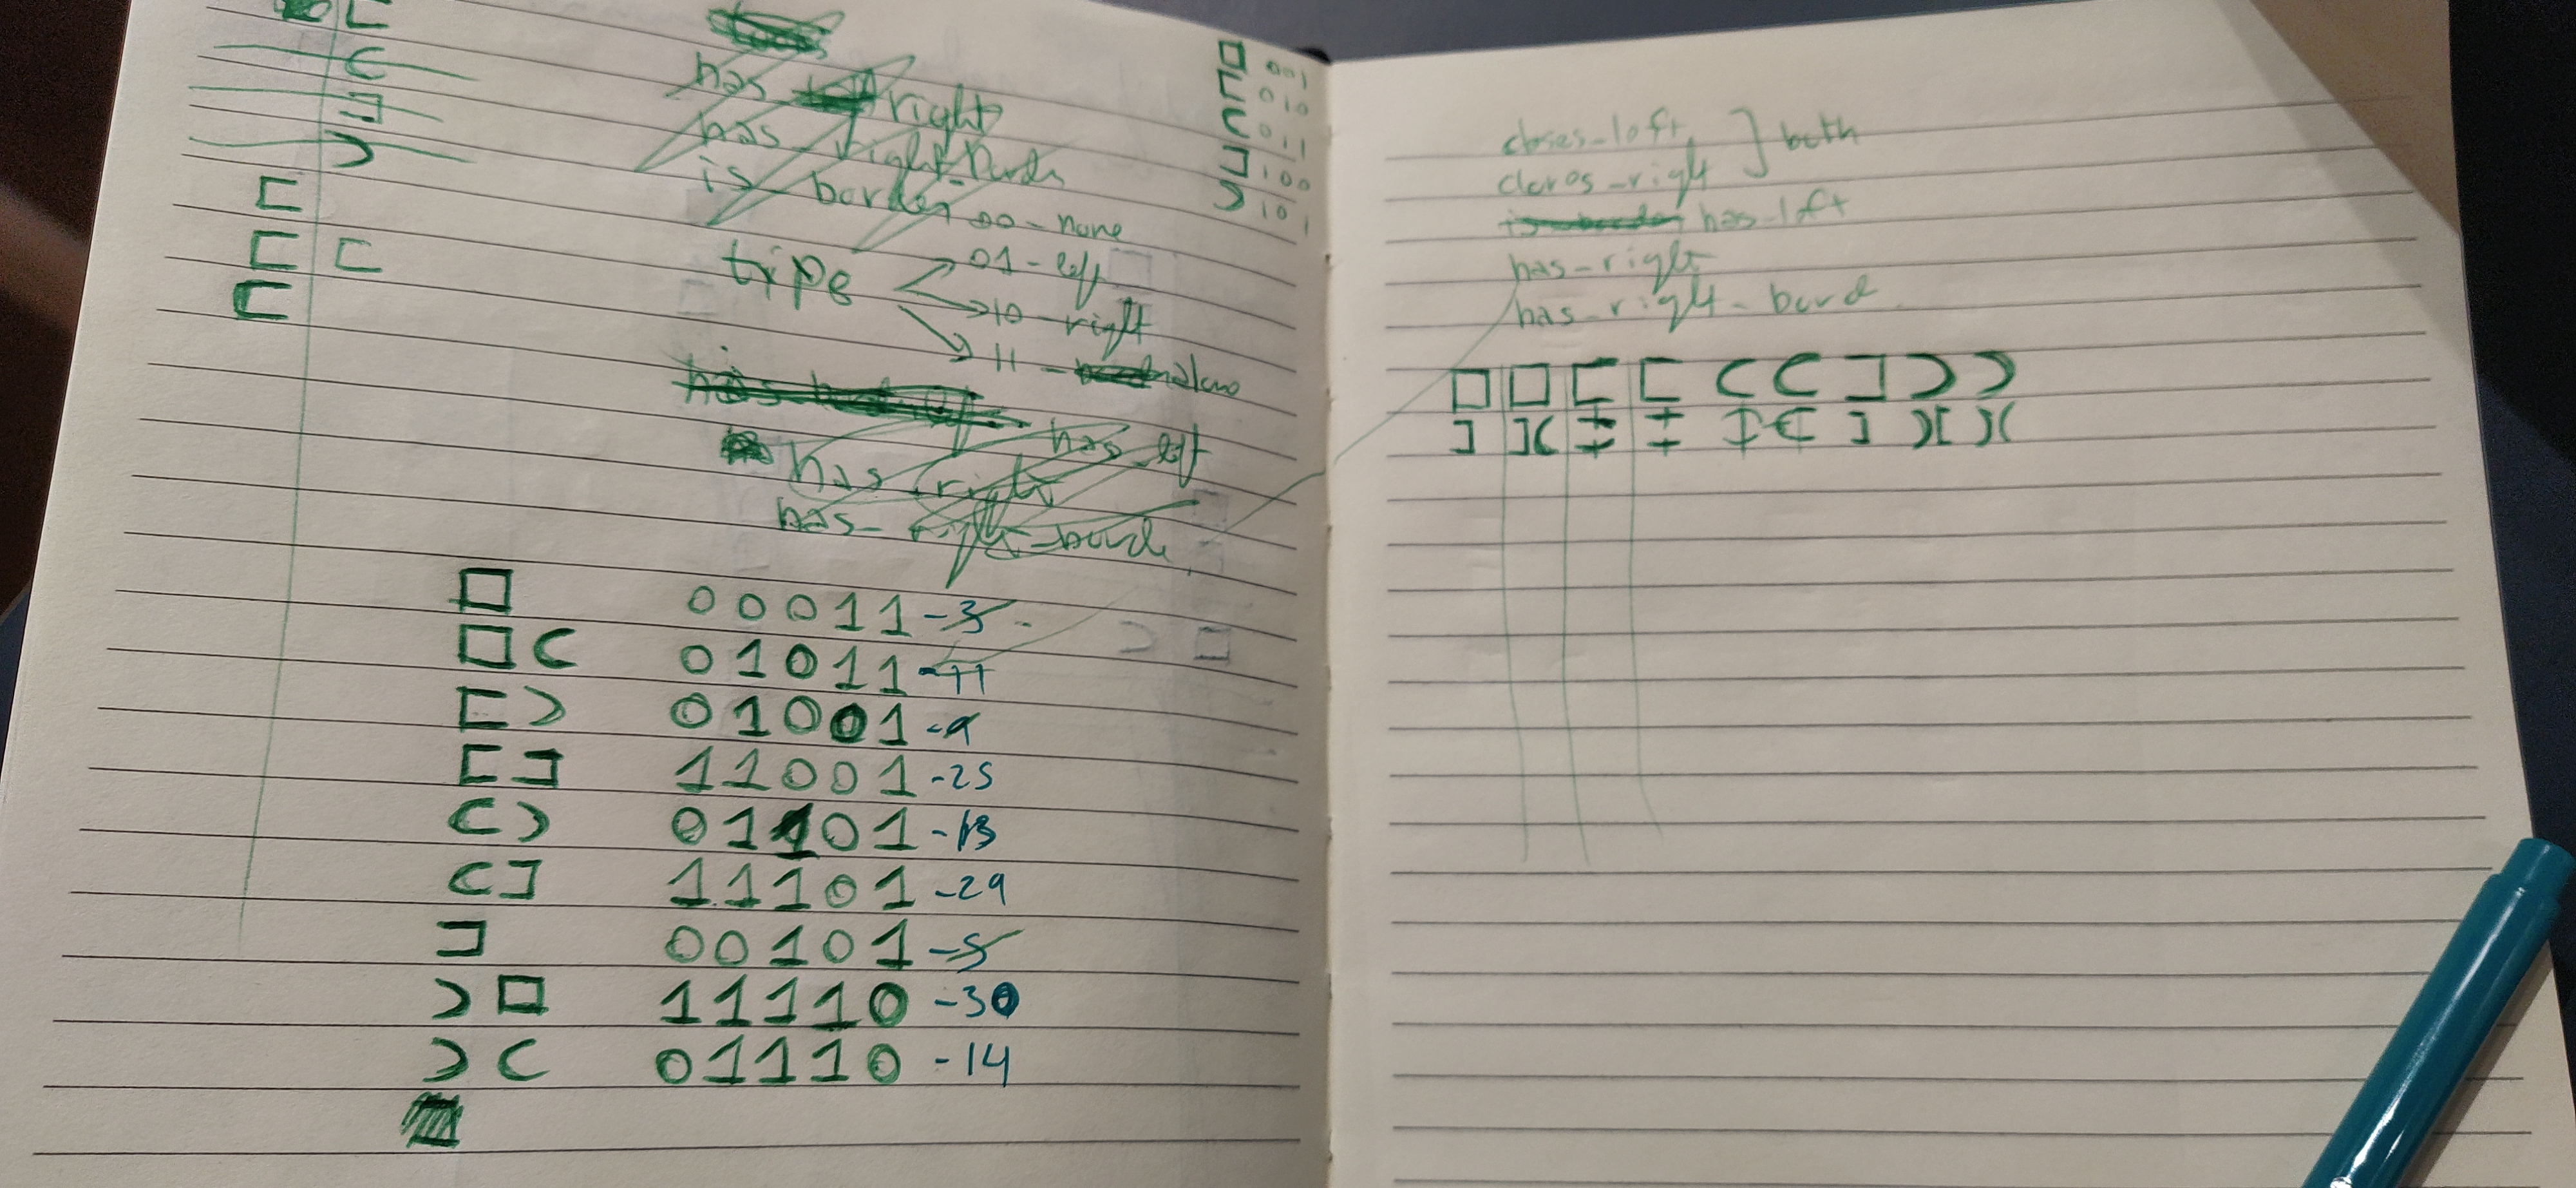 ⊏
⊂
⊐
⊃
⊏
⊏ ⊏
⊏
has right
has_right_bord
is_border
type
00-none
01-left
10-right
11-
has_left
has_right
has_right_bord
□ 001
⊏ 010
⊂ 011
⊐ 100
⊃ 101
□ 00011-3
□ ⊂ 01011-11
⊏ ⊃ 01001-9
⊏ ⊐ 11001-25
⊂ ⊃ 01101-13
⊂ ⊐ 11101-29
⊐ 00101-5
⊃ □ 11110-30
⊃ ⊂ 01110-14
closes_left
closes_right } both
has_left
has_right
has_right-bord
□ □ ⊏ ⊏ ⊂ ⊂ ⊐ ⊃ ⊃